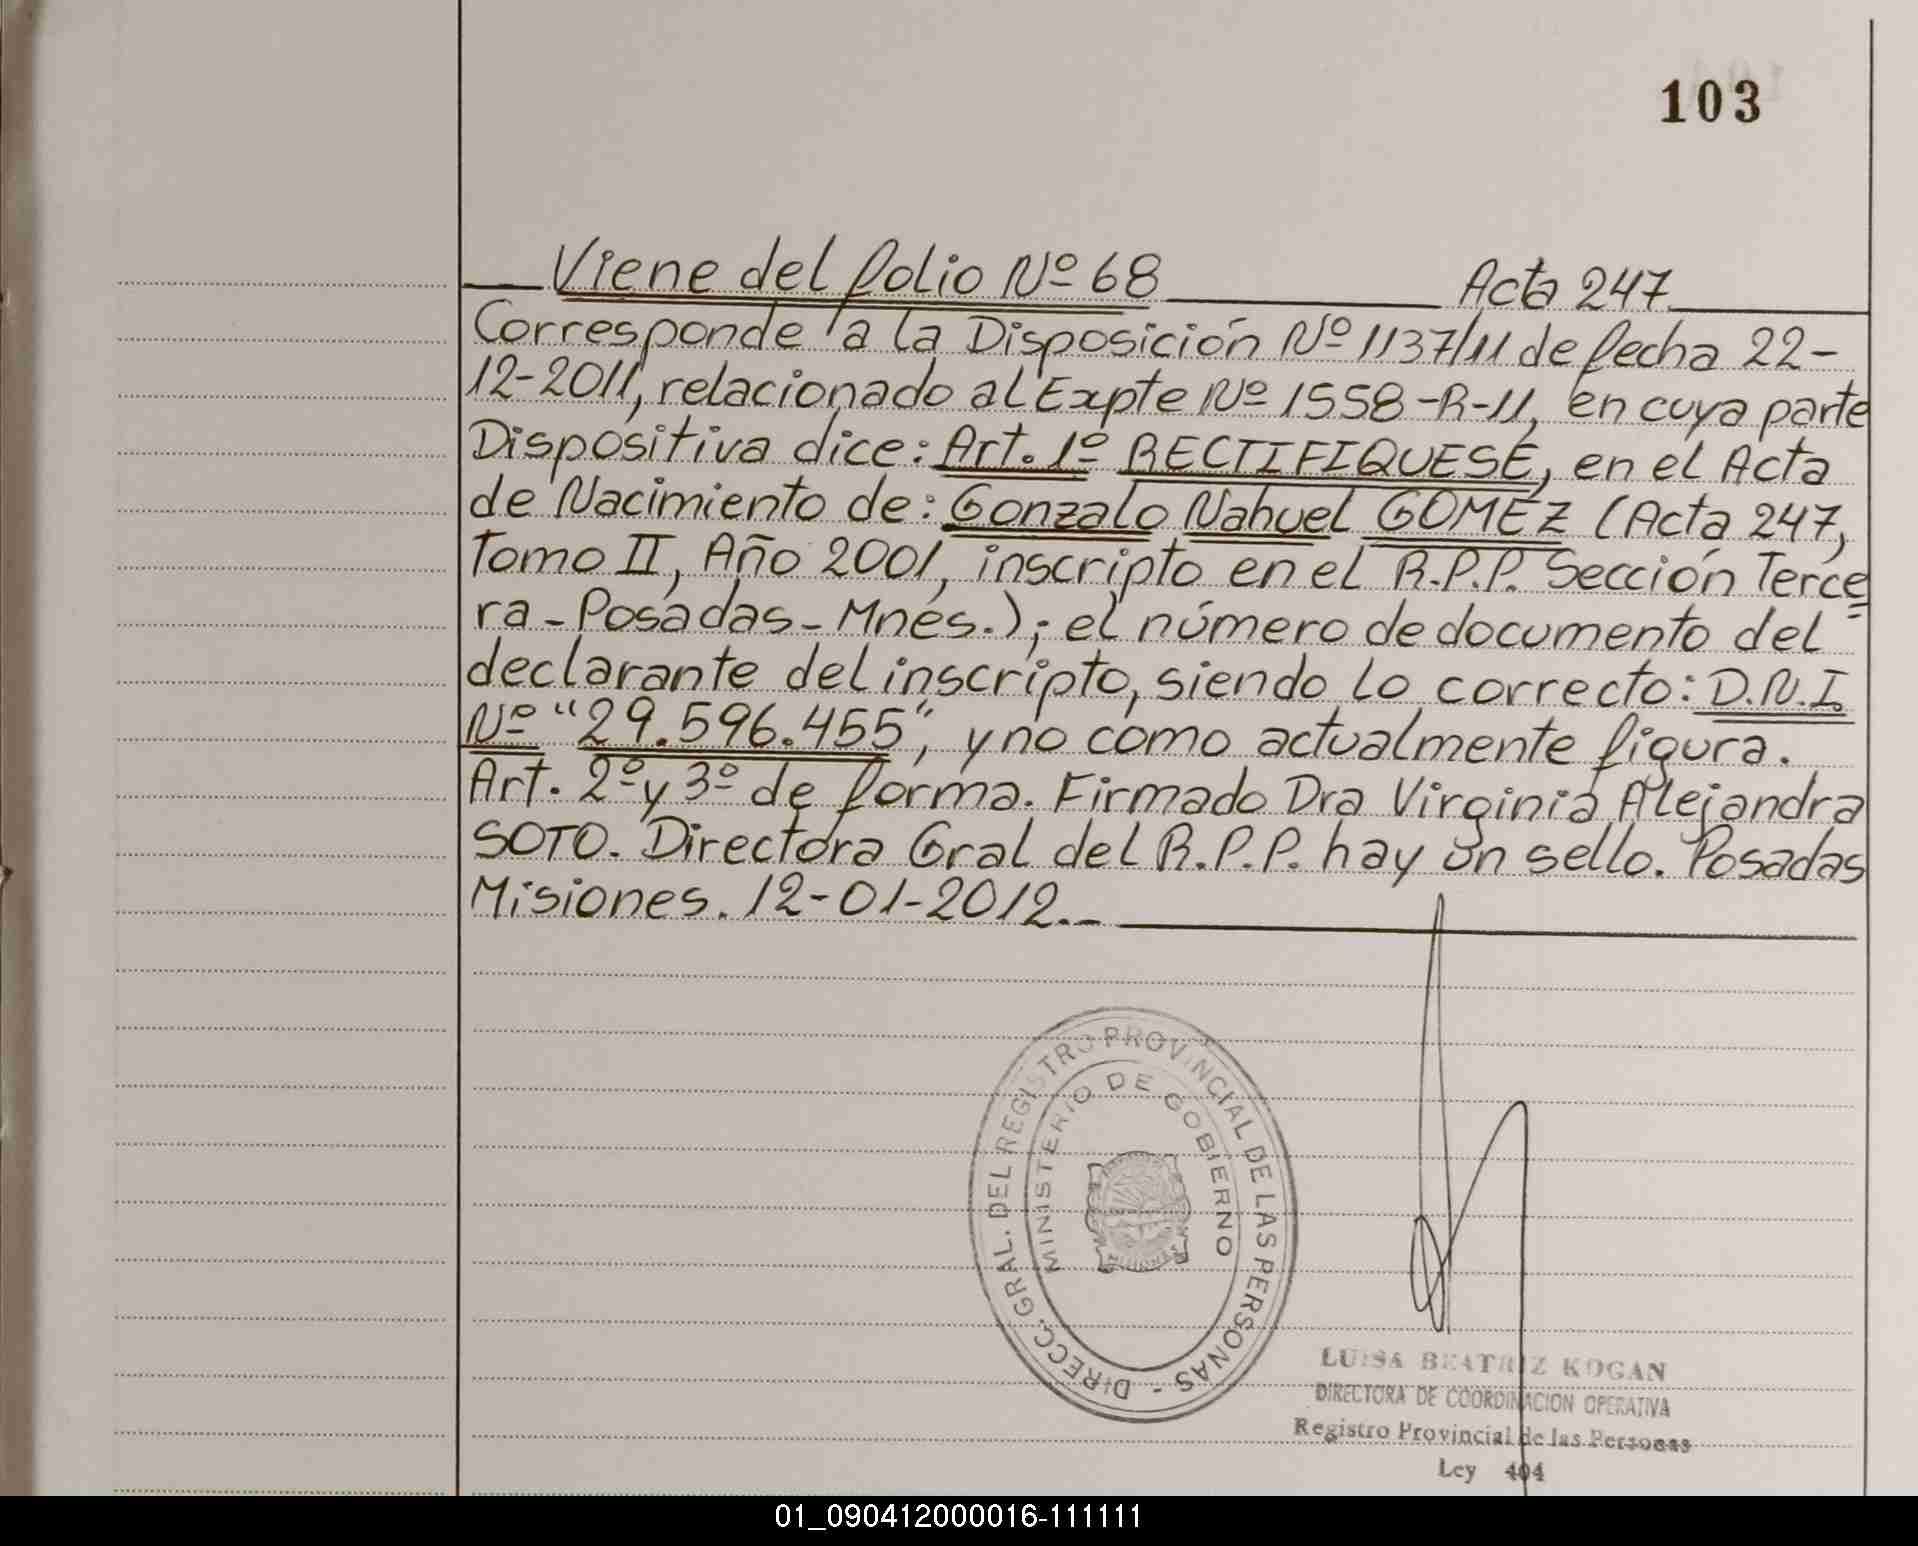 103
Viene del folio Nº 68 Acta 247
Corresponde a la Disposición Nº 1137/11 de fecha 22-
12-2011, relacionado al Expte Nº 1558-R-11, en cuya parte
Dispositiva dice: Art. 1º RECTIFIQUESE, en el Acta
de Nacimiento de: Gonzalo Nahuel GOMEZ (Acta 247,
Tomo II, Año 2001, inscripto en el R.P.P. Sección Terce
ra - Posadas - Mnes.); el número de documento del
declarante del inscripto, siendo lo correcto: D.N.I.
Nº "29.596.455", y no como actualmente figura.
Art. 2º y 3º de forma. Firmado Dra Virginia Alejandra
SOTO. Directora Gral del R.P.P. hay un sello. Posadas
Misiones. 12-01-2012.-
DIRECC. GRAL. DEL REGISTRO PROVINCIAL DE LAS PERSONAS -
MINISTERIO DE GOBIERNO
LUISA BEATRIZ KOGAN
DIRECTORA DE COORDINACION OPERATIVA
Registro Provincial de las Personas
Ley 404
01_090412000016-111111